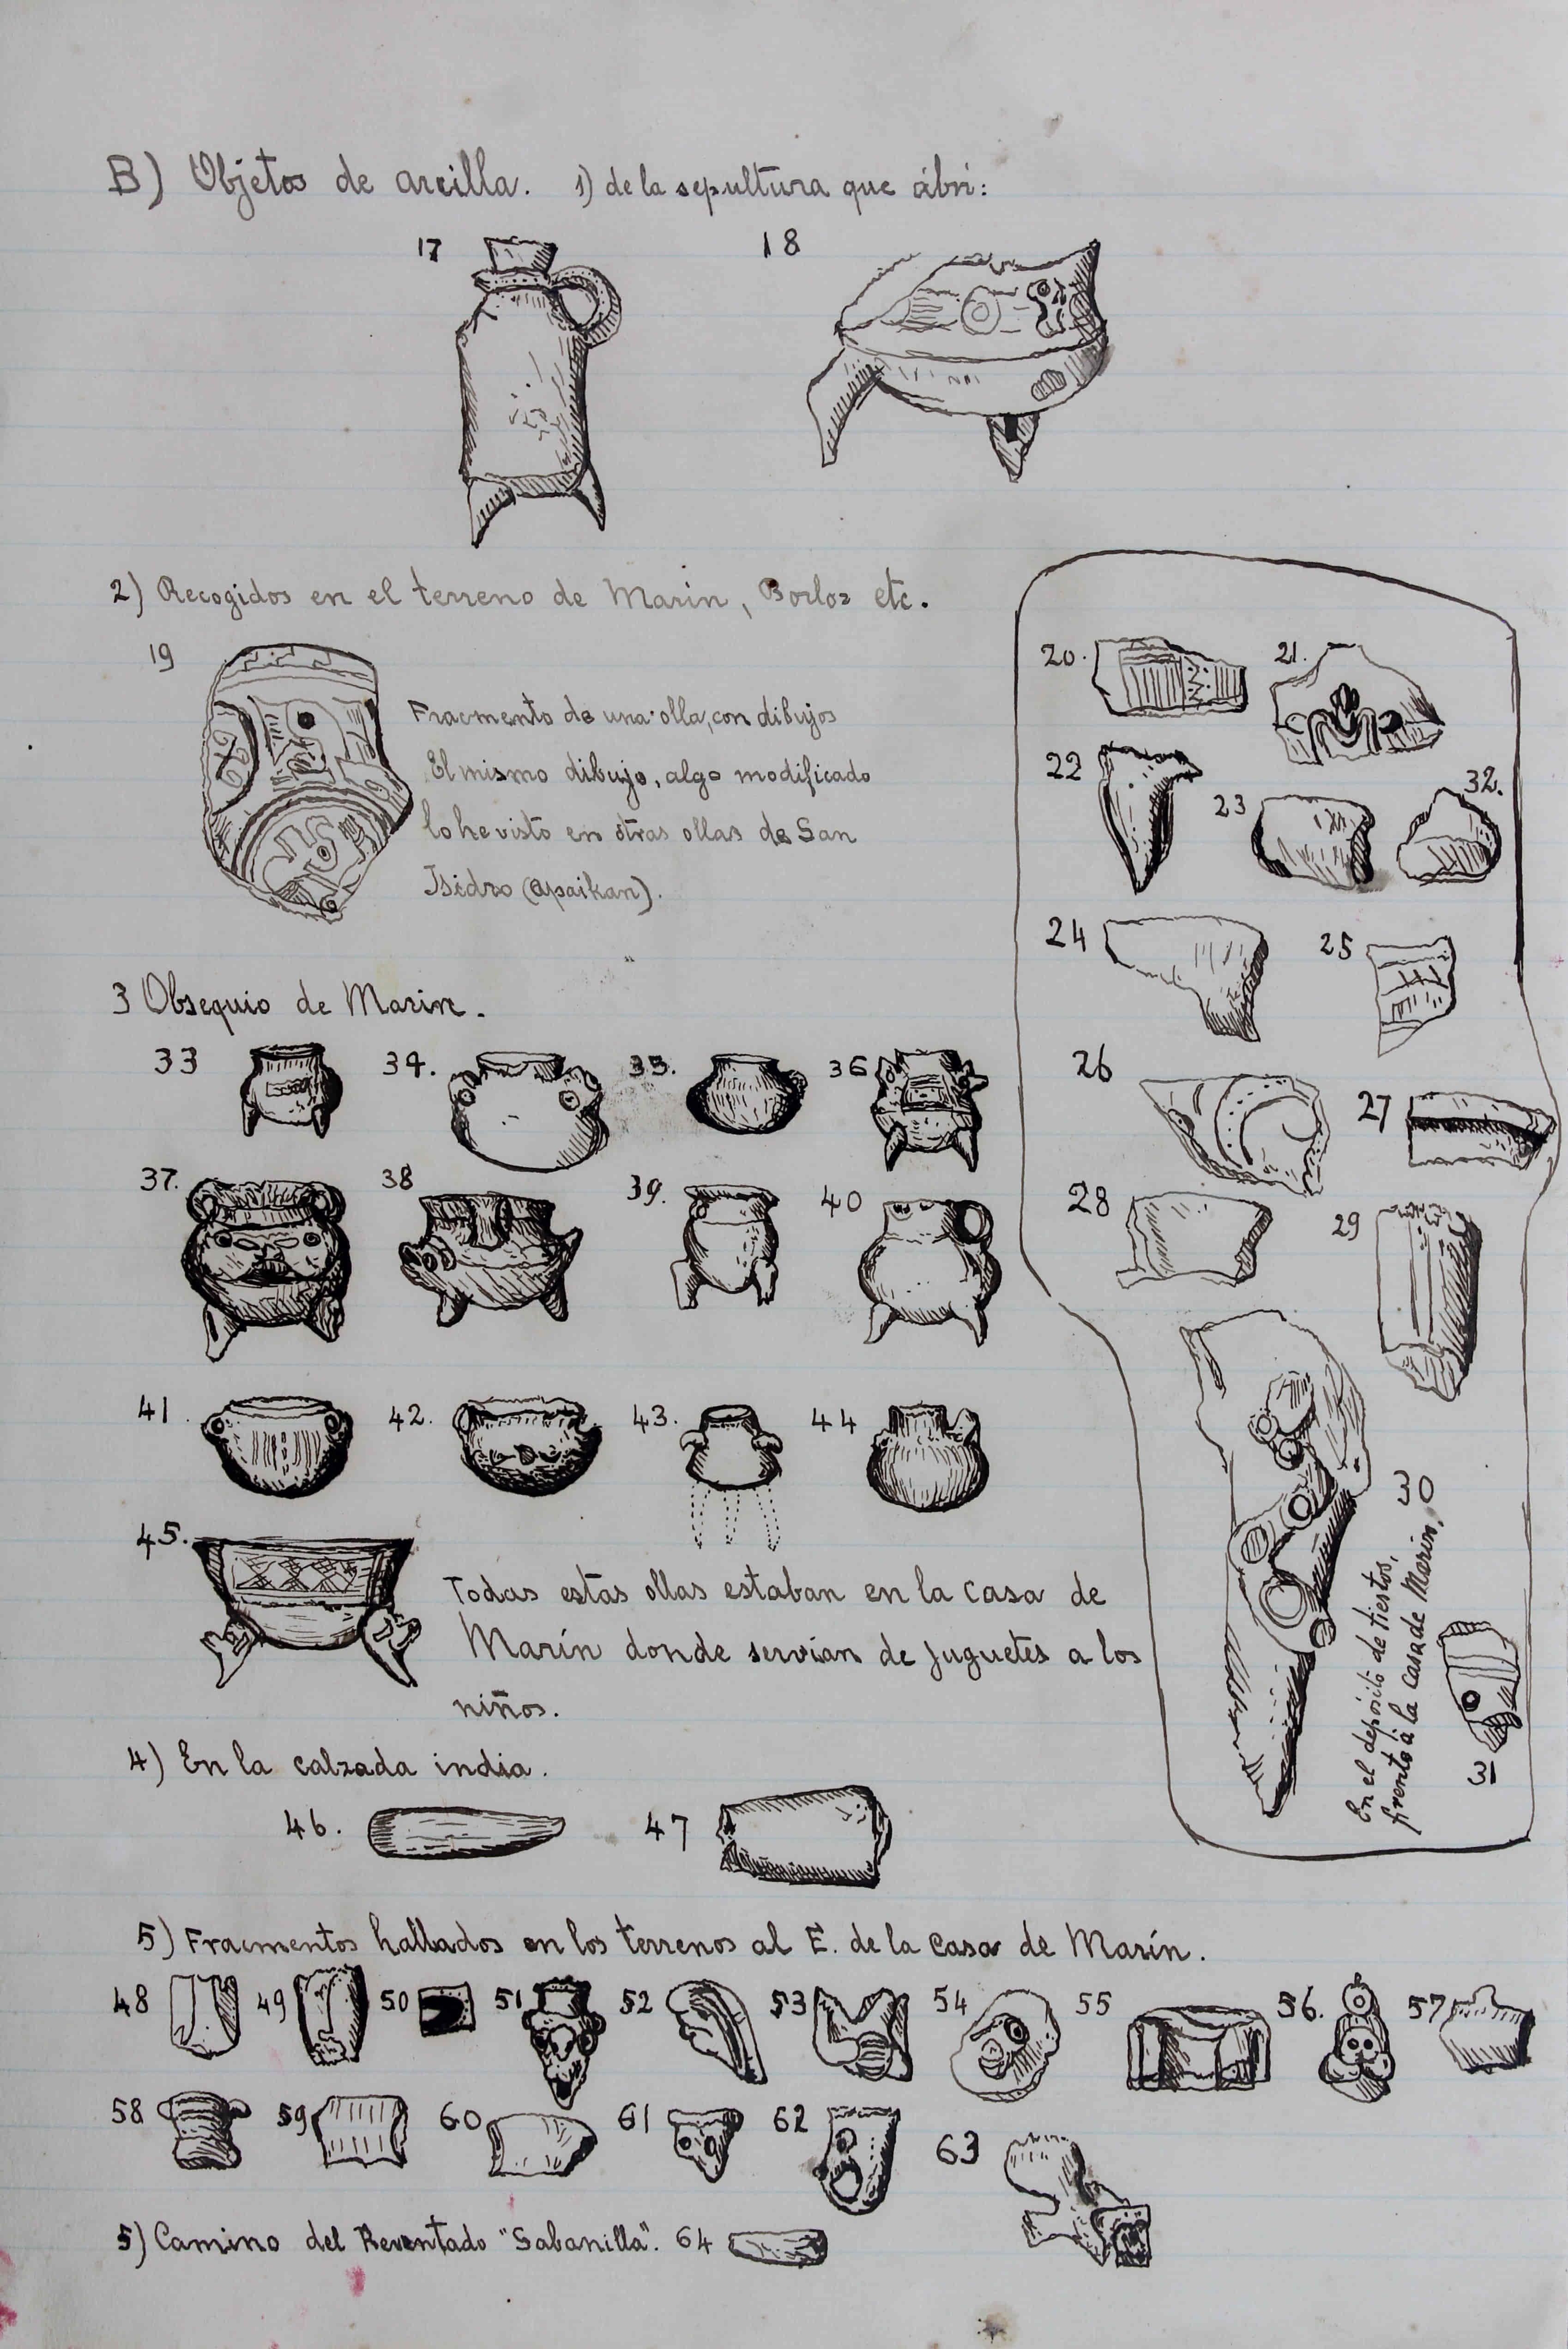 B) Objetos de arcilla. 1) de la sepultura que abrí:
17
18
2) Recogidos en el terreno de Marín, etc.
19
Fracmento de una olla, con dibujos
El mismo dibujo, algo modificado
lo he visto en otras ollas de San
Isidro (apaikan).
20.
21.
22
23
32.
24
25
26
27
28
29
30
En el depósito de tiestos,
frente à la casa de Marín,
31
3 Obsequio de Marín.
33
34.
35.
36
37.
38
39.
40
41
42.
43.
44
45.
Todas estas ollas estaban en la casa de
Marín donde servían de juguetes a los
niños.
4) En la calzada india.
46.
47
5) Fracmentos hallados en los terrenos al E. de la casa de Marín.
48
49
50
51
52
53
54
55
56.
57
58
59
60
61
62
63
5) Camino del Reventado "Sabanilla". 64